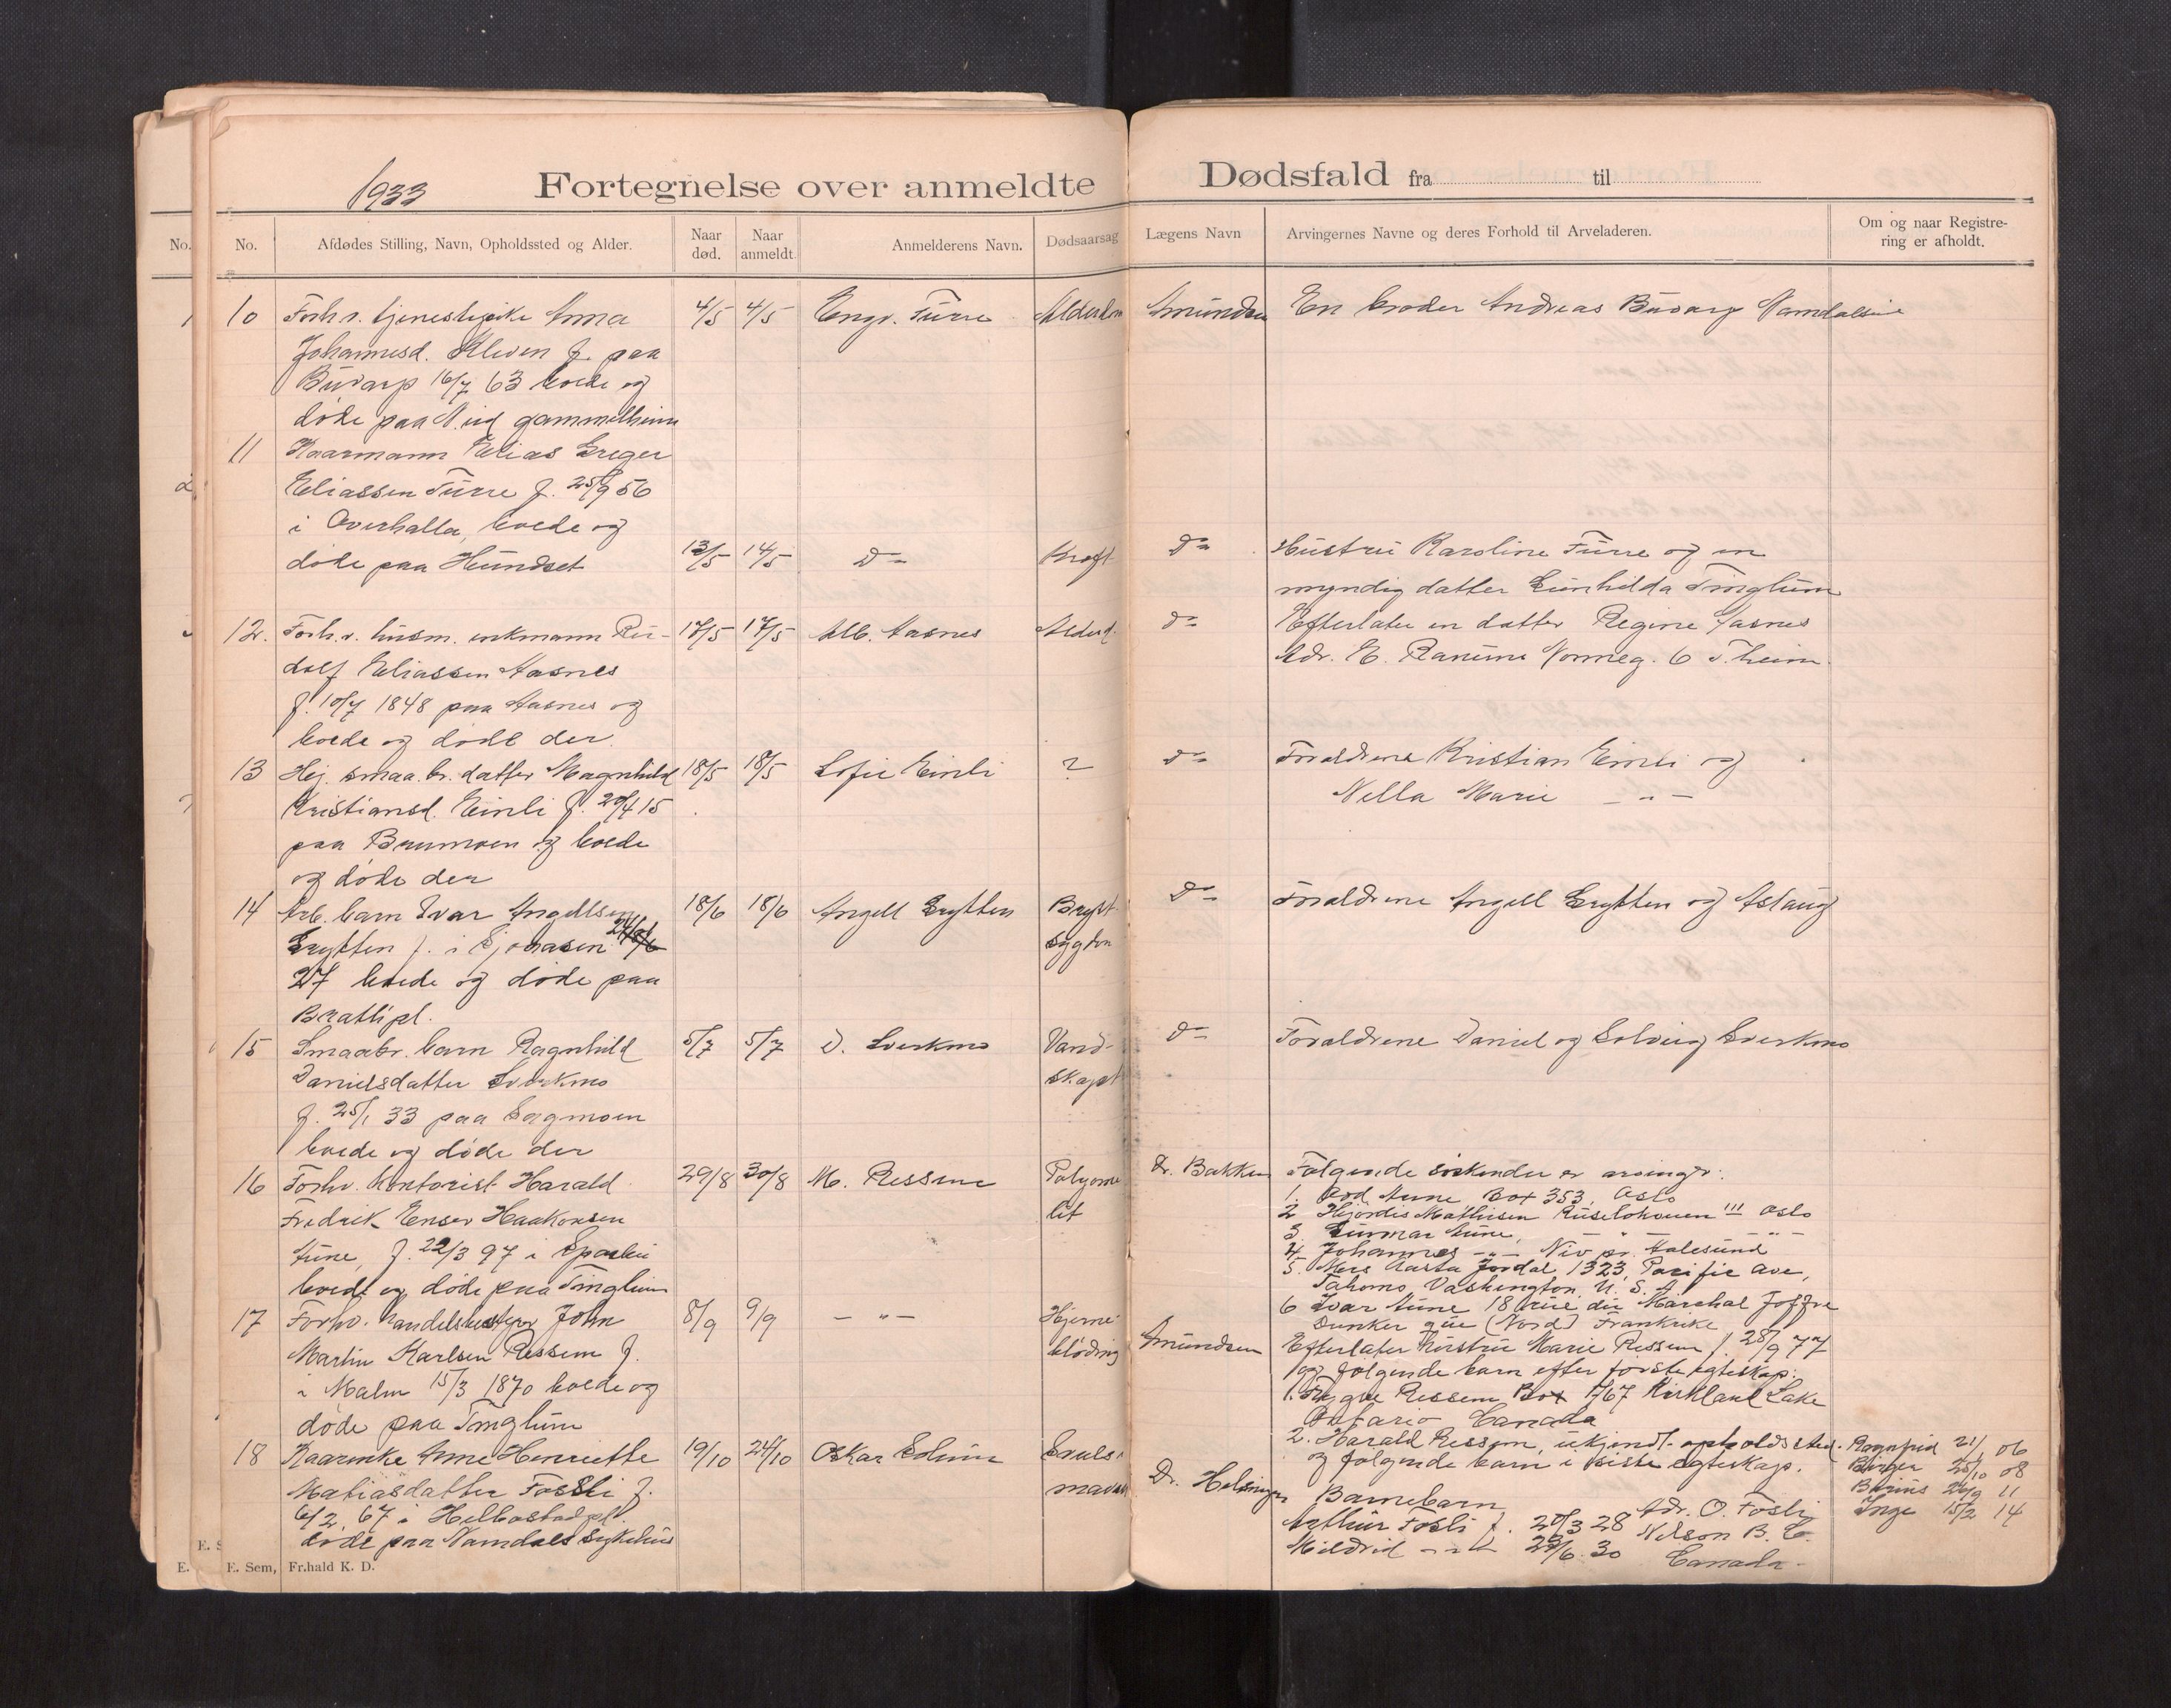 1933
Fortegnelse over anmeldte Dødsfald fra til
No.
No. Afdødes Stilling, Navn, Opholdssted og Alder. Naar død. Naar anmeldt. Anmelderens Navn. Dødsaarsag Lægens Navn Arvingernes Navne og deres Forhold til Arveladeren. Om og naar Registrering er afholdt.
10 Forhv. tjenestepike Anna 4/5 4/5 Engv. Furre Alderdom Amundsen En broder Andreas Buvarp Namdalseid
Johannesd. Kleven f. paa
Buvarp 16/7 63 boede og
døde paa N.eid gammelheim
11 Kaarmann Elias Greger
Eliassen Furre f. 25/9 56
i Overhalla, boede og
døde paa Hundset 13/5 14/5 D- Kræft D- Hustru Karoline Furre og en
myndig datter Gunhilda Tinglum
12. Forh.v. husm. enkmann Ru- 17/5 17/5 Alb. Aasnes Alderd. D- Efterlater en datter Regine Aasnes
dolf Eliassen Aasnes Adr. E. Ranum Nonneg. 6 T.heim
f. 10/7 1848 paa Aasnes og
boede og døde der.
13 Hj. smaa br. datter Magnhild 18/5 18/5 Sofie Einli ? D- Foraldrene Kristian Einli og
Kristiansd. Einli f. 20/4 15 Nella Marie - " -
paa Brumoen og boede
og døde der
14 Arb. barn Ivar Angellsen 18/6 18/6 Angell Grytten Bryst- D- Foraldrene Angell Grytten og Aslaug
Grytten f. i sygdom
27 boede og døde paa
Brattlipl.
15 Smaabr. barn Ragnhild 5/7 5/7 D. Sverkmo Vand- D- Foraldrene Daniel og Solveig Sverkmo
Danielsdatter Sverkmo skapt
f. 25/1 33 paa Sagmoen
boede og døde der
16 Forhv. kontorist Harald 29/8 30/8 M. Ressem Polyome Dr. Bakken Følgende søskender er arvinger:
Fredrik Enser Haakonsen lit
1. Rod. Aune Box 353, Oslo
2 Hjørdis Mathisen Ruseløkveien 111 Oslo
3. Gunnar Aune, - " - - " -
Aune, f. 22/3 97 i Sparbu
4. Johannes - " - Niv pr. Aalesund
5. Mrs Aasta Jordal 1323, Pacific Ave,
boede og døde paa Tinglum
Tahomo Vashington, U. S. A
6 Ivar Aune 18 rue du Marchal Joffre
Dunker que (Nord) Frankrike
17 Forhv. handelsbestyrer John 8/9 9/9 - " - Hjerne- Amundsen Efterlater hustru Marie Ressem f. 28/9 77
Martin Karlsen Ressem f. blødning og følgende barn efter første egteskap:
i Malm 15/3 1870 boede og 1. Trygve Ressem Box 1767 Kirkland Lake
døde paa Tinglum Ontario Canada
2. Harald Ressem, ukjendt opholdssted.
og følgende barn i siste egteskap.
Ragnfrid 21/1 06
Birger 25/10 08
11
Inge 15/2 14
18 Kaarenke Anne Henriette 19/10 24/10 Oskar Solum Dr. Helsingen Barnebarn
Matiasdatter Fossli f.
6/2 67 i Helbostadpl. Arthur Fosli f. 28 Adr. O. Fosli
døde paa Namdals sykehus Mildrid - " - 30 Nelson B. C.
Canada -
E. Sem, Fr.hald K. D.